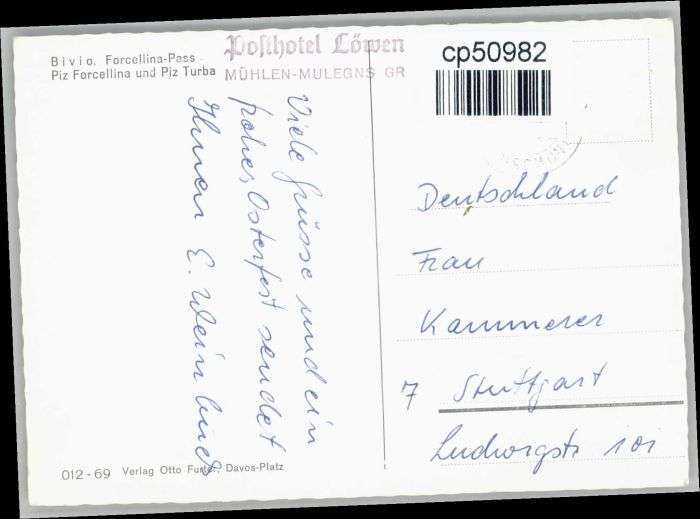 Bivio. Forcellina-Pass
Piz Forcellina und Piz Turba
Posthotel Löwen
MÜHLEN-MULEGNS GR
cp50982
Viele Grüsse und ein
frohes Osterfest sendet
Ihnen E. Wein
Deutschland
Frau
Kammerer
7 Stuttgart
Ludwigstr 101
012-69 Verlag Otto Furter, Davos-Platz